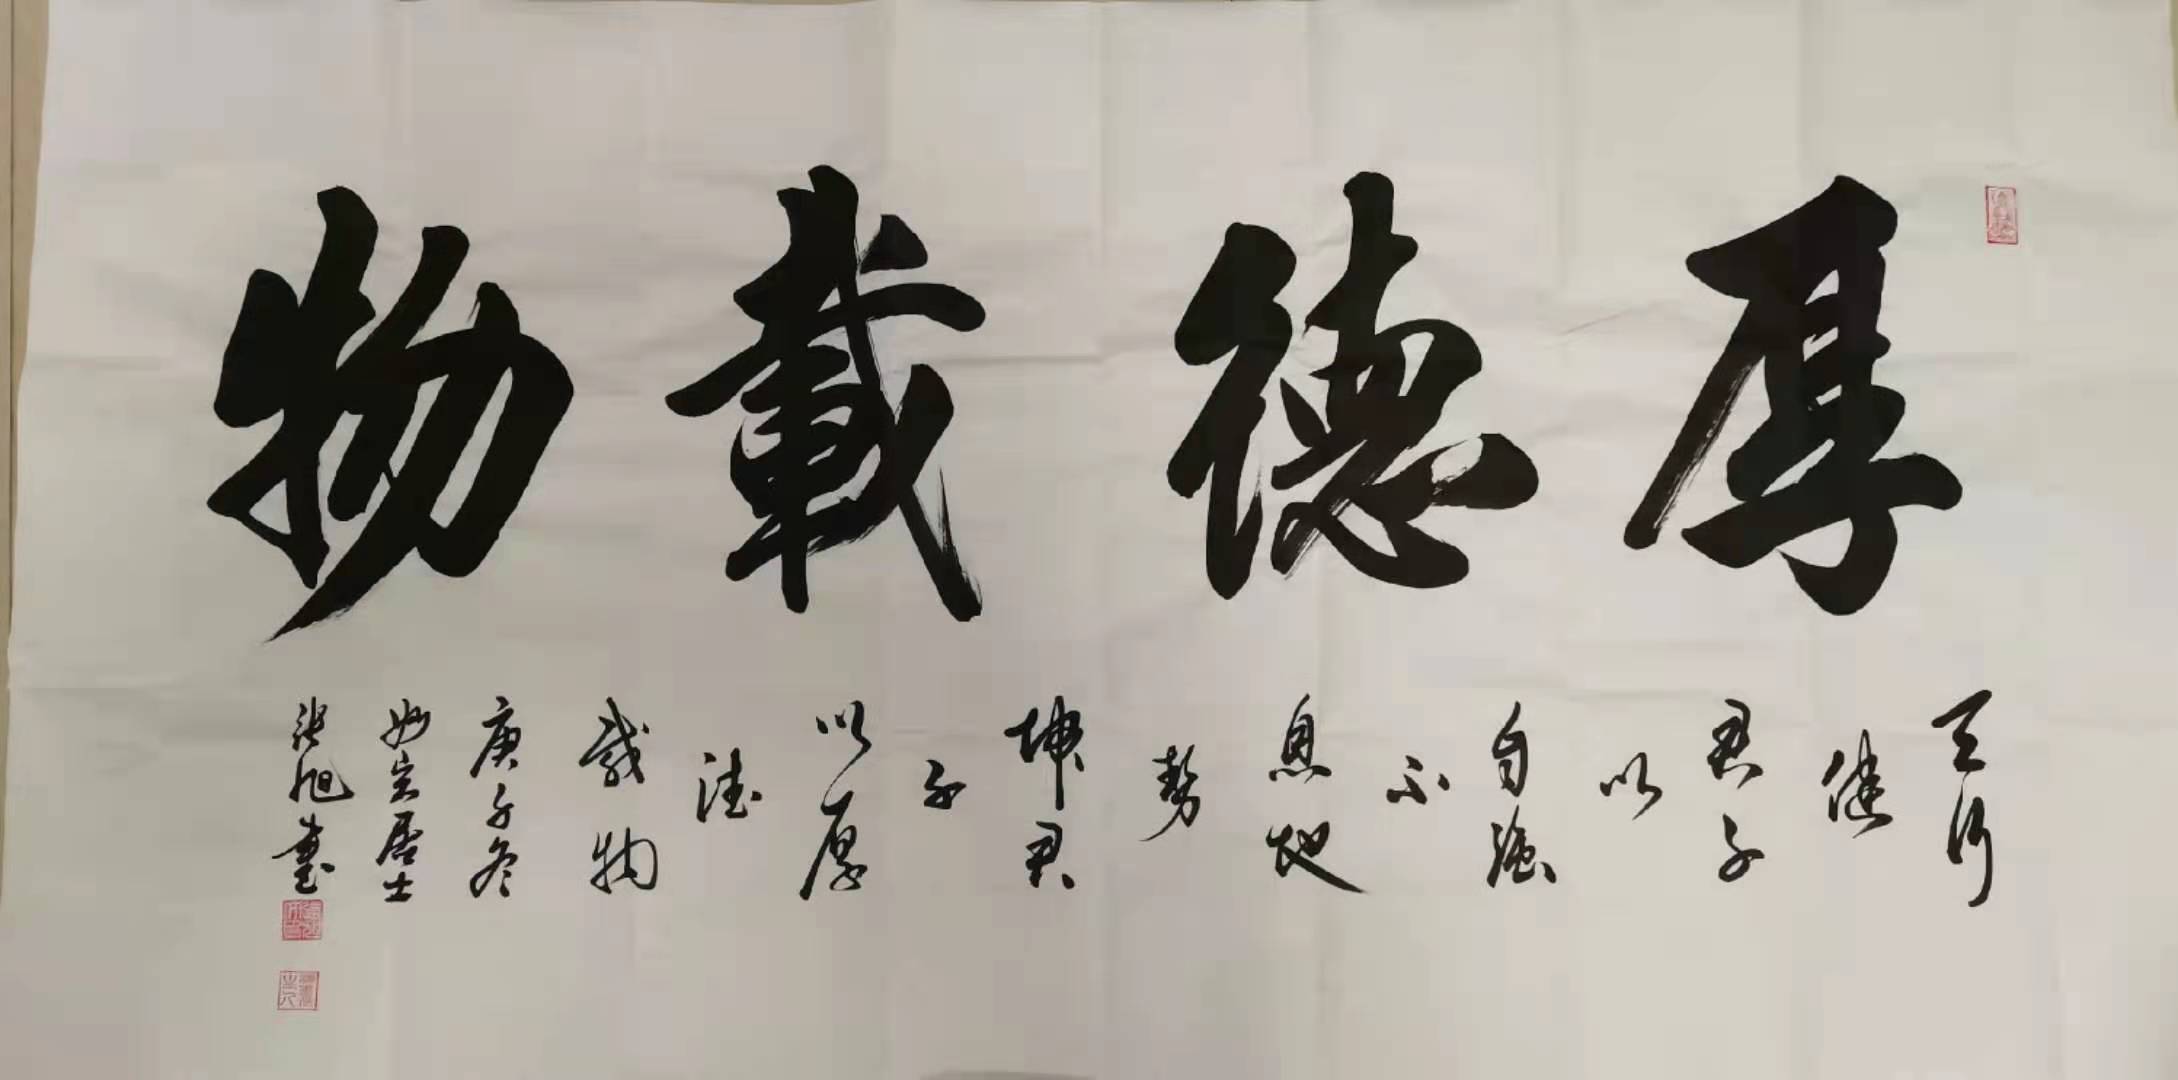 厚德載物
天行
健
君子
以
自強
不
息地
勢
坤君
子
以厚
德
載物
庚子冬
妙玄居士
張旭書